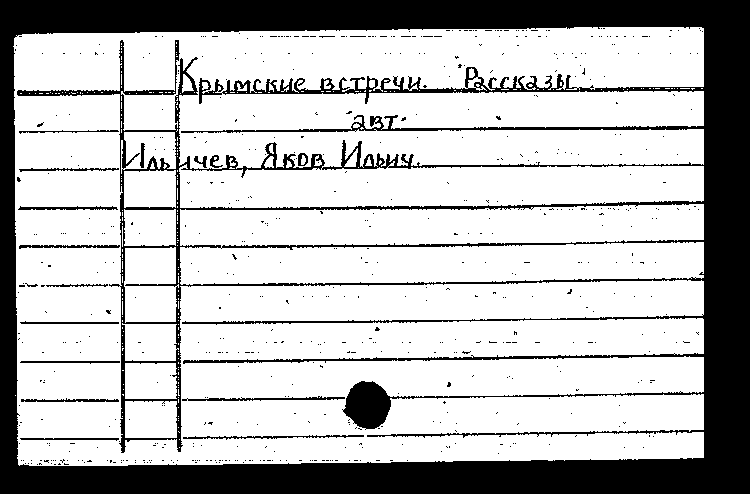 Крымские встречи. Рассказы
авт.
Ильичев, Яков Ильич.